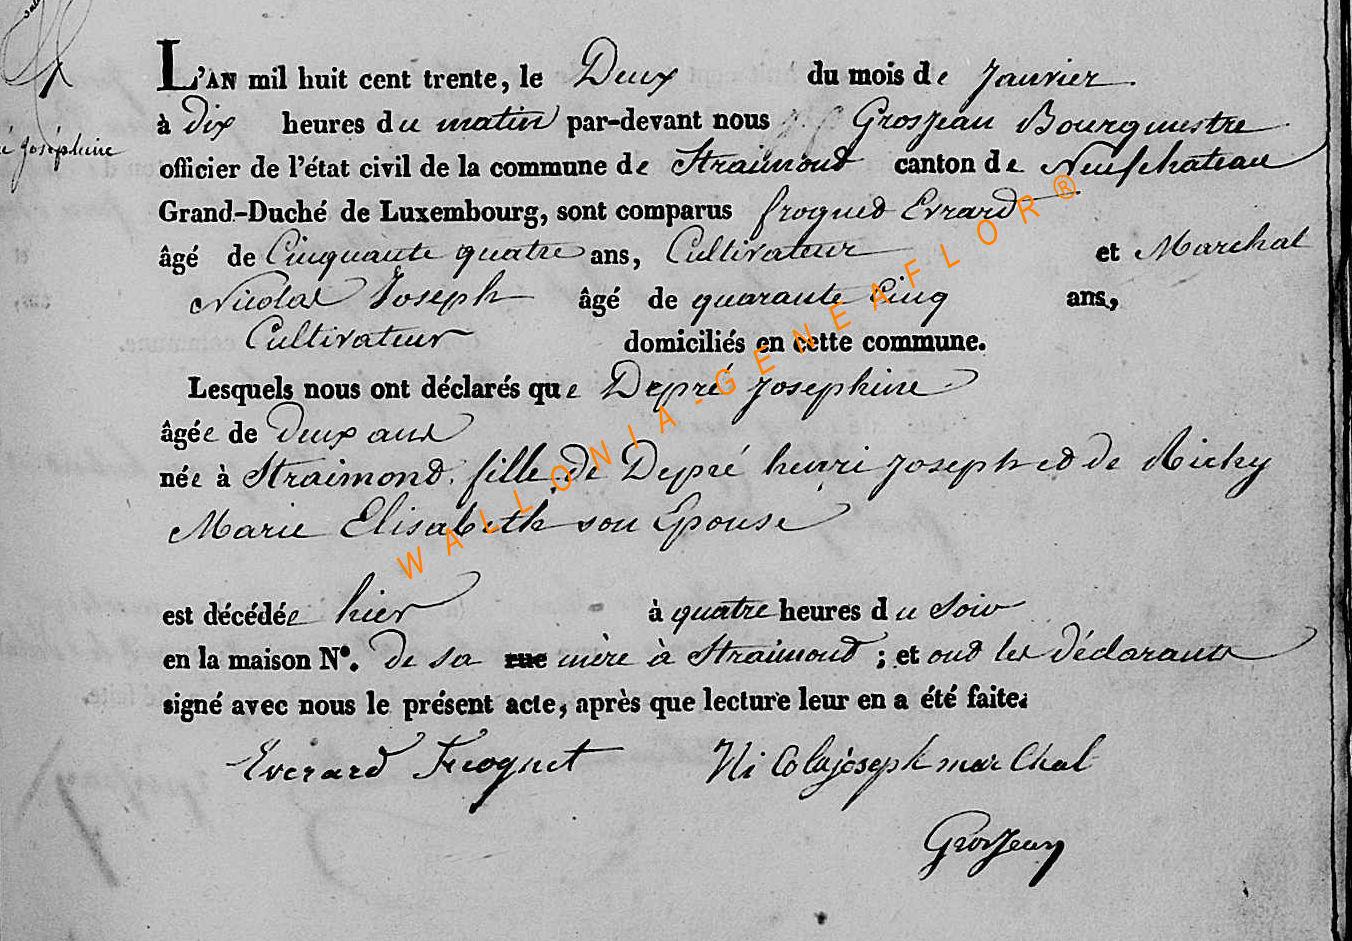 é joséphine
L'AN mil huit cent trente, le Deux du mois de Janvier
à dix heures du matin par-devant nous J. J. Grosjean Bourguestre
officier de l'état civil de la commune de Straimont canton de Neufchateau
Grand-Duché de Luxembourg, sont comparus froguet Evrard
âgé de Cinquante quatre ans, Cultivateur et Marchal
Nicolas Joseph âgé de quarante Cinq ans,
Cultivateur domiciliés en cette commune.
Lesquels nous ont déclarés que Depré Josephine
âgée de deux ans
née à Straimont. fille de Depré henri joseph et de Richy
Marie Elisabeth son Epouse
est décédée hier à quatre heures du Soir
en la maison N°. de sa rue mère à Straimont ; et ont les déclarants
signé avec nous le présent acte, après que lecture leur en a été faite.
Everard Frognet Nicolajoseph marchal
Grosjean
WALLONIA-GENEAFLOR®